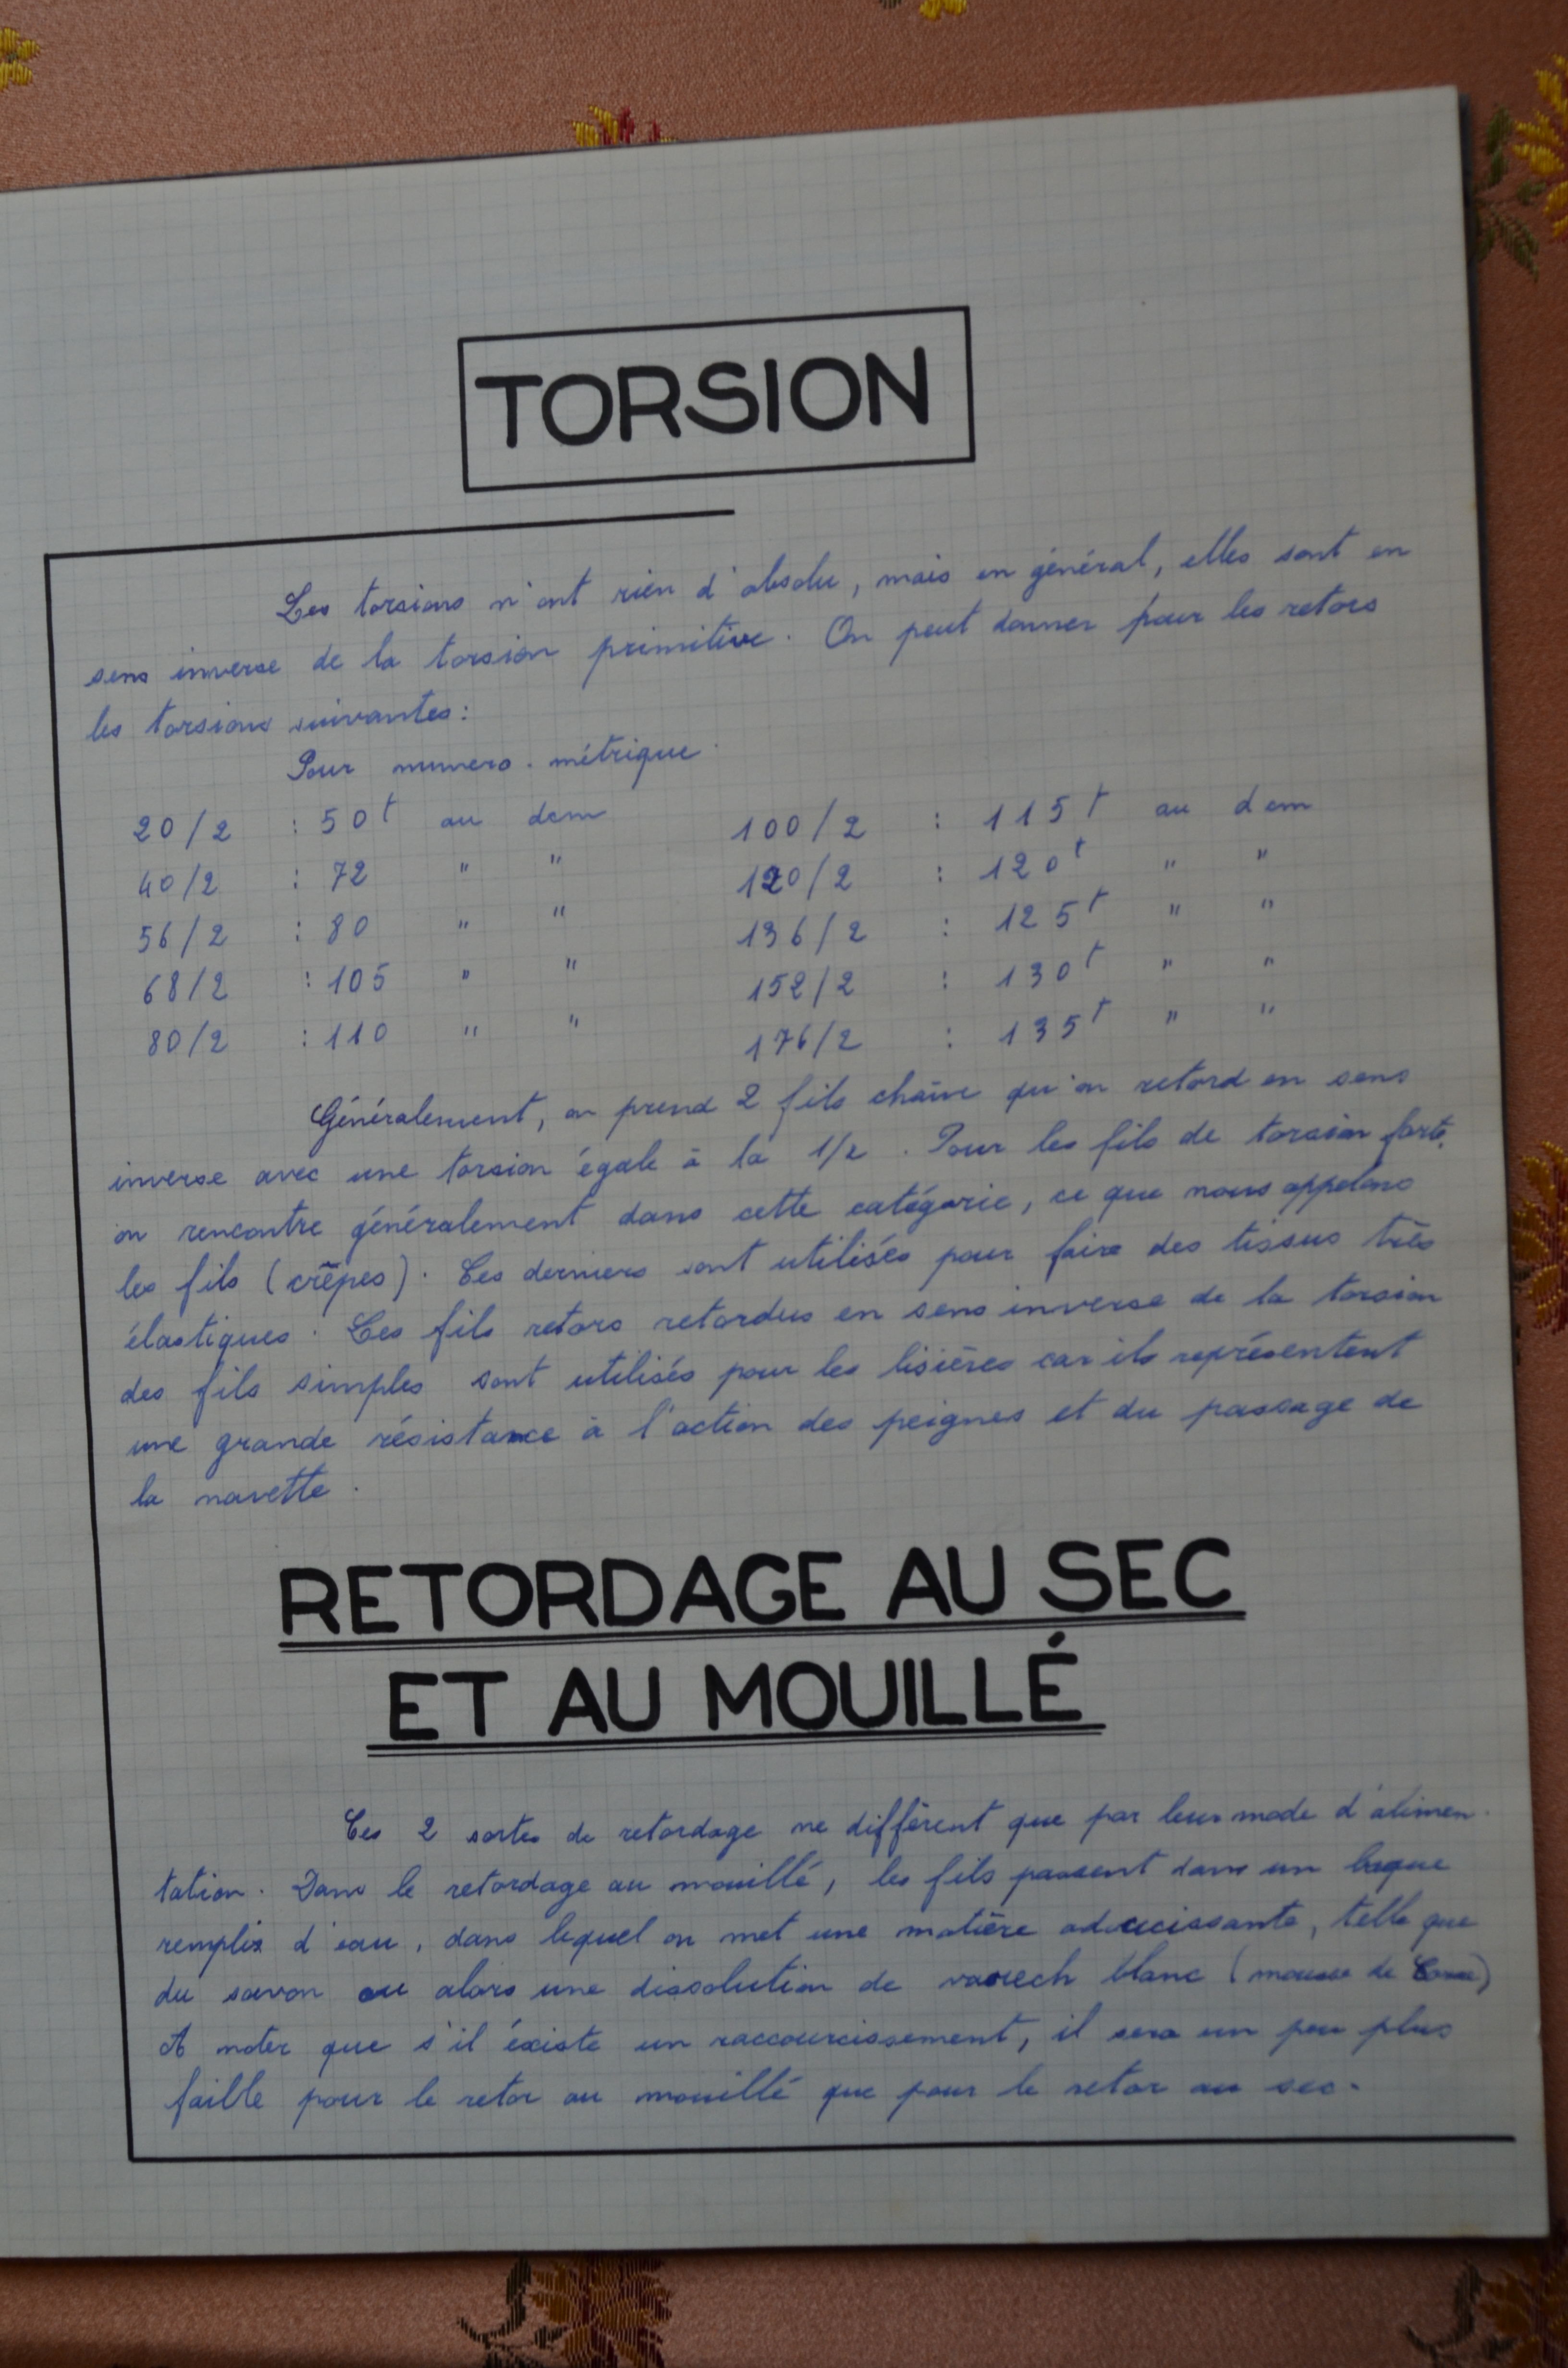 TORSION
Les torsions n'ont rien d'absolu, mais en général, elles sont en
sens inverse de la torsion primitive. On peut donner pour les retors
les torsions suivantes:
Pour numero. métrique.
20/2 : 50t au dcm 100/2 : 115t au dcm
40/2 : 72 " " 120/2 : 120t " "
56/2 : 80 " " 136/2 : 125t " "
68/2 : 105 " " 152/2 : 130t " "
80/2 : 110 " " 176/2 : 135t " "
Généralement, on prend 2 fils chaîne qu'on retord en sens
inverse avec une torsion égale à la 1/2. Pour les fils de torsion forte,
on rencontre généralement dans cette catégorie, ce que nous appelons
les fils (crêpes). Ces derniers sont utilisés pour faire des tissus très
élastiques. Les fils retors retordus en sens inverse de la torsion
des fils simples sont utilisés pour les lisières car ils représentent
une grande résistance à l'action des peignes et du passage de
la navette.
RETORDAGE AU SEC
ET AU MOUILLÉ
Ces 2 sortes de retordage ne diffèrent que par leur mode d'alimen-
tation. Dans le retordage au mouillé, les fils passent dans un baque
remplis d'eau, dans lequel on met une matière adoucissante, telle que
du savon ou alors une dissolution de varech blanc (mousse de Corse)
A noter que s'il éxiste un raccourcissement, il sera un peu plus
faille pour le retor au mouillé que pour le retor au sec.